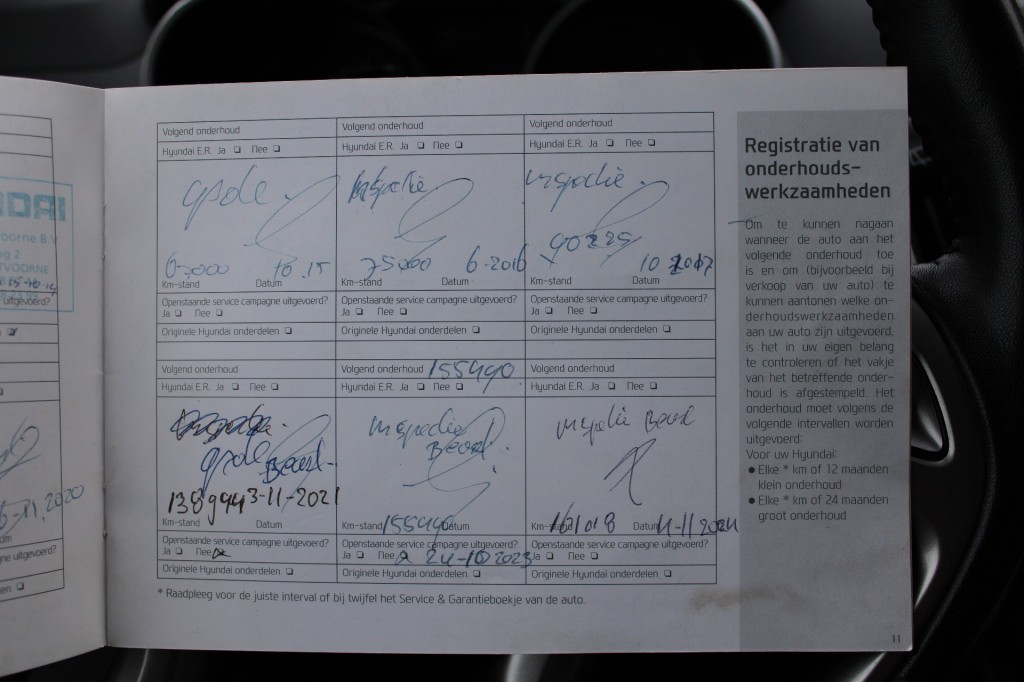 Volgend onderhoud
Hyundai E.R. Ja ❑ Nee ❑
opde
60.000 10.15
Km-stand Datum
Openstaande service campagne uitgevoerd?
Ja ❑ Nee ❑
Originele Hyundai onderdelen ❑
Volgend onderhoud
Hyundai E.R. Ja ❑ Nee ❑
Inspectie
75.000 6-2016
Km-stand Datum
Openstaande service campagne uitgevoerd?
Ja ❑ Nee ❑
Originele Hyundai onderdelen ❑
Volgend onderhoud
Hyundai E.R. Ja ❑ Nee ❑
inspectie
90225
10 2017
Km-stand Datum
Openstaande service campagne uitgevoerd?
Ja ❑ Nee ❑
Originele Hyundai onderdelen ❑
Volgend onderhoud
Hyundai E.R. Ja ❑ Nee ❑
opde
Beurt
138994 3-11-2021
Km-stand Datum
Openstaande service campagne uitgevoerd?
Ja ❑ Nee
Originele Hyundai onderdelen ❑
Volgend onderhoud 155490
Hyundai E.R. Ja ❑ Nee ❑
inspectie
Beurt
Km-stand 155490 Datum
Openstaande service campagne uitgevoerd?
Ja ❑ Nee 24-10 2023
Originele Hyundai onderdelen ❑
Volgend onderhoud
Hyundai E.R. Ja ❑ Nee ❑
inspectie Beurt
Km- 161018 Datum 4-11-2024
Openstaande service campagne uitgevoerd?
Ja ❑ Nee ❑
Originele Hyundai onderdelen ❑
* Raadpleeg voor de juiste interval of bij twijfel het Service & Garantieboekje van de auto.
Registratie van
onderhouds-
werkzaamheden
Om te kunnen nagaan
wanneer de auto aan het
volgende onderhoud toe
is en om (bijvoorbeeld bij
verkoop van uw auto) te
kunnen aantonen welke on-
derhoudswerkzaamheden
aan uw auto zijn uitgevoerd,
is het in uw eigen belang
te controleren of het vakje
van het betreffende onder-
houd is afgestempeld. Het
onderhoud moet volgens de
volgende intervallen worden
uitgevoerd:
Voor uw Hyundai:
● Elke * km of 12 maanden
klein onderhoud
● Elke * km of 24 maanden
groot onderhoud
11